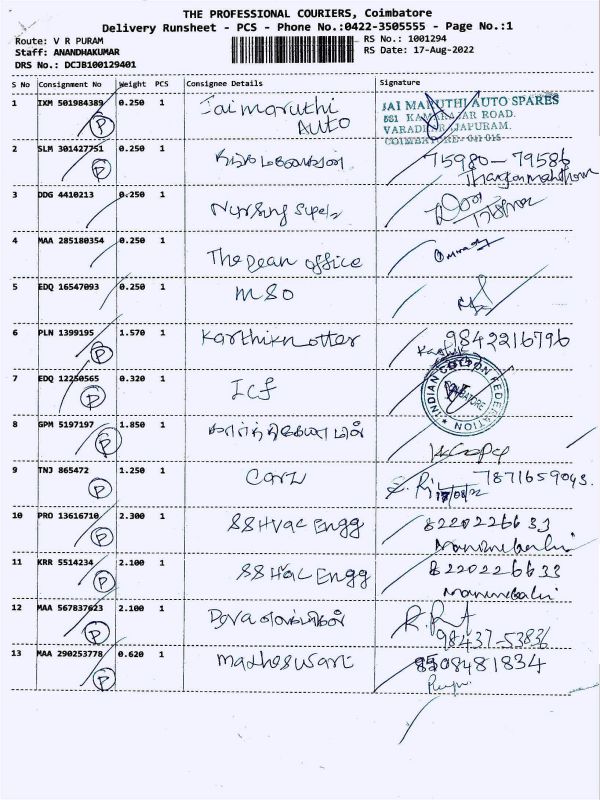 THE PROFESSIONAL COURIERS, Coimbatore
Delivery Runsheet - PCS - Phone No.:0422-3505555 - Page No.:1
Route: V R PURAM
RS No.: 1001294
Staff: ANANDHAKUMAR
RS Date: 17-Aug-2022
DRS No.: DCJB100129401
S No Consignment No Weight PCS Consignee Details Signature
1 IXM 501984389 0.250 1 Jaimaruthi AUTO
P
JAI MARUTHI AUTO SPARES
581 KAMARAJAR ROAD.
VARADHARAJAPURAM.
COIMBATORE - 641 015
2 SLM 301427751 0.250 1 75980-79586
P
3 DDG 4410213 0.250 1 Nursing
4 MAA 285180354 0.250 1 The Dean office
5 EDQ 16547093 0.250 1 MSO
6 PLN 1399195 1.570 1 9842216796
P
7 EDQ 12250565 0.320 1 ICF
P
INDIAN COTTON FEDERATION
COIMBATORE
8 GPM 5197197 1.850 1
P
9 TNJ 865472 1.250 1 7871659043.
P
17/08/22
10 PRO 13616710 2.300 1 SSHVAC Engg 8220226633
P
11 KRR 5514234 2.100 1 SSHVAC Engg 8220226633
P
12 MAA 567837623 2.100 1
P
98437-53836
13 MAA 290253778 0.620 1 Matheswari 9508481834
P